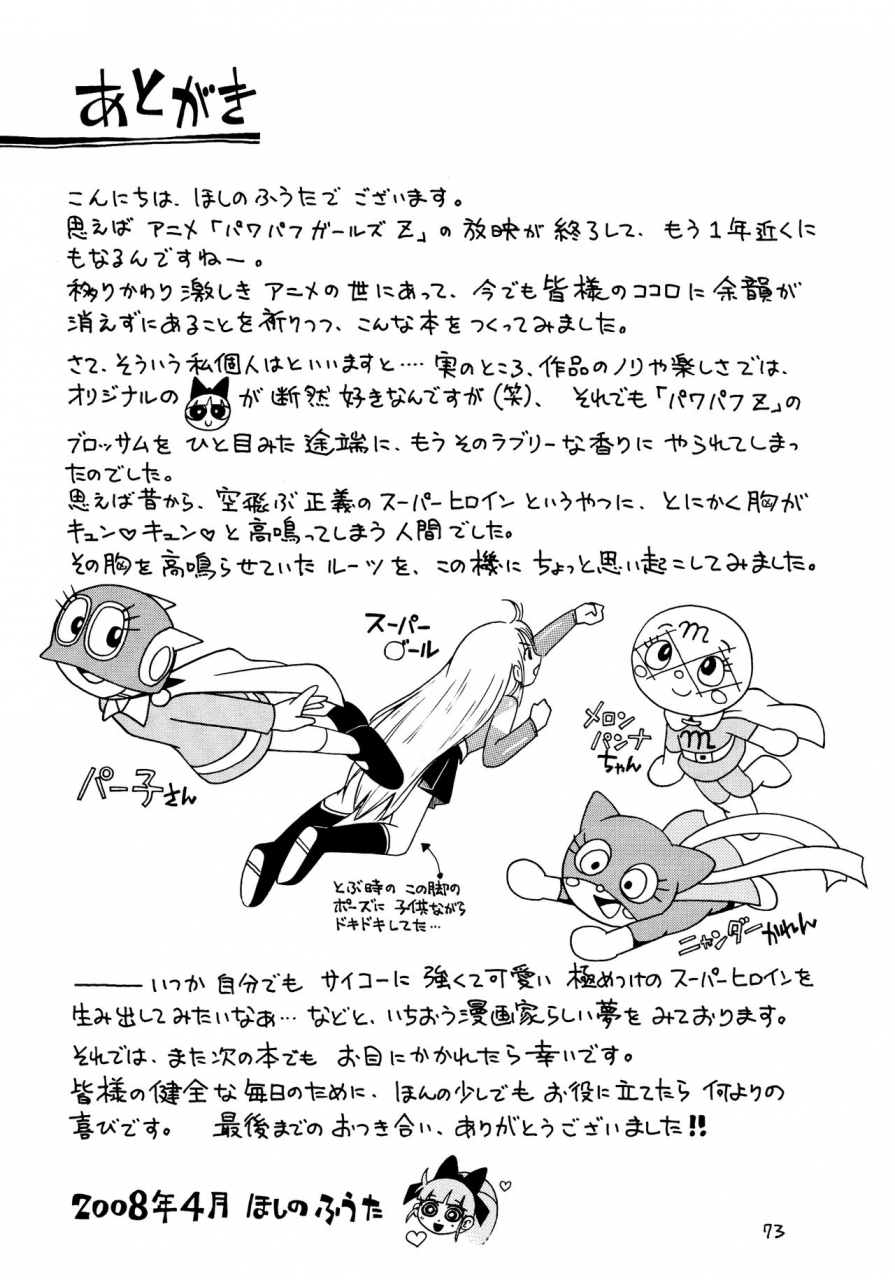 あとがき
こんにちは、ほしのふうたでございます。
思えば アニメ「パワパフガールズZ」の放映が終了して、もう1年近くに
もなるんですねー。
移りかわり激しき アニメの世にあって、今でも皆様のココロに余韻が
消えずにあることを祈りつつ、こんな本をつくってみました。
さて、そういう私個人はといいますと…. 実のところ、作品のノリや楽しさでは、
オリジナルの が 断然 好きなんですが(笑)、 それでも「パワパフZ」の
ブロッサムを ひと目みた途端に、もうそのラブリーな香りに やられてしまっ
たのでした。
思えば昔から、空飛ぶ正義のスーパーヒロインというやつに、とにかく胸が
キュン♡キュン♡と高鳴ってしまう人間でした。
その胸を高鳴らせていた ルーツを、この機に ちょっと思い起こしてみました。
スーパー
○ール
パー子さん
メロン
パンナ
ちゃん
m
m
とぶ時の この脚の
ポーズに 子供ながら
ドキドキしてた…
ニャンダーかれん
――いつか 自分でも サイコーに 強くて可愛い 極めつけの スーパーヒロインを
生み出してみたいなぁ… などと、いちおう漫画家らしい夢を みております。
それでは、また次の本でも お目にかかれたら幸いです。
皆様の健全な毎日のために、ほんの少しでも お役に立てたら 何よりの
喜びです。 最後までの おつき合い、ありがとうございました!!
2008年4月 ほしの ふうた
73